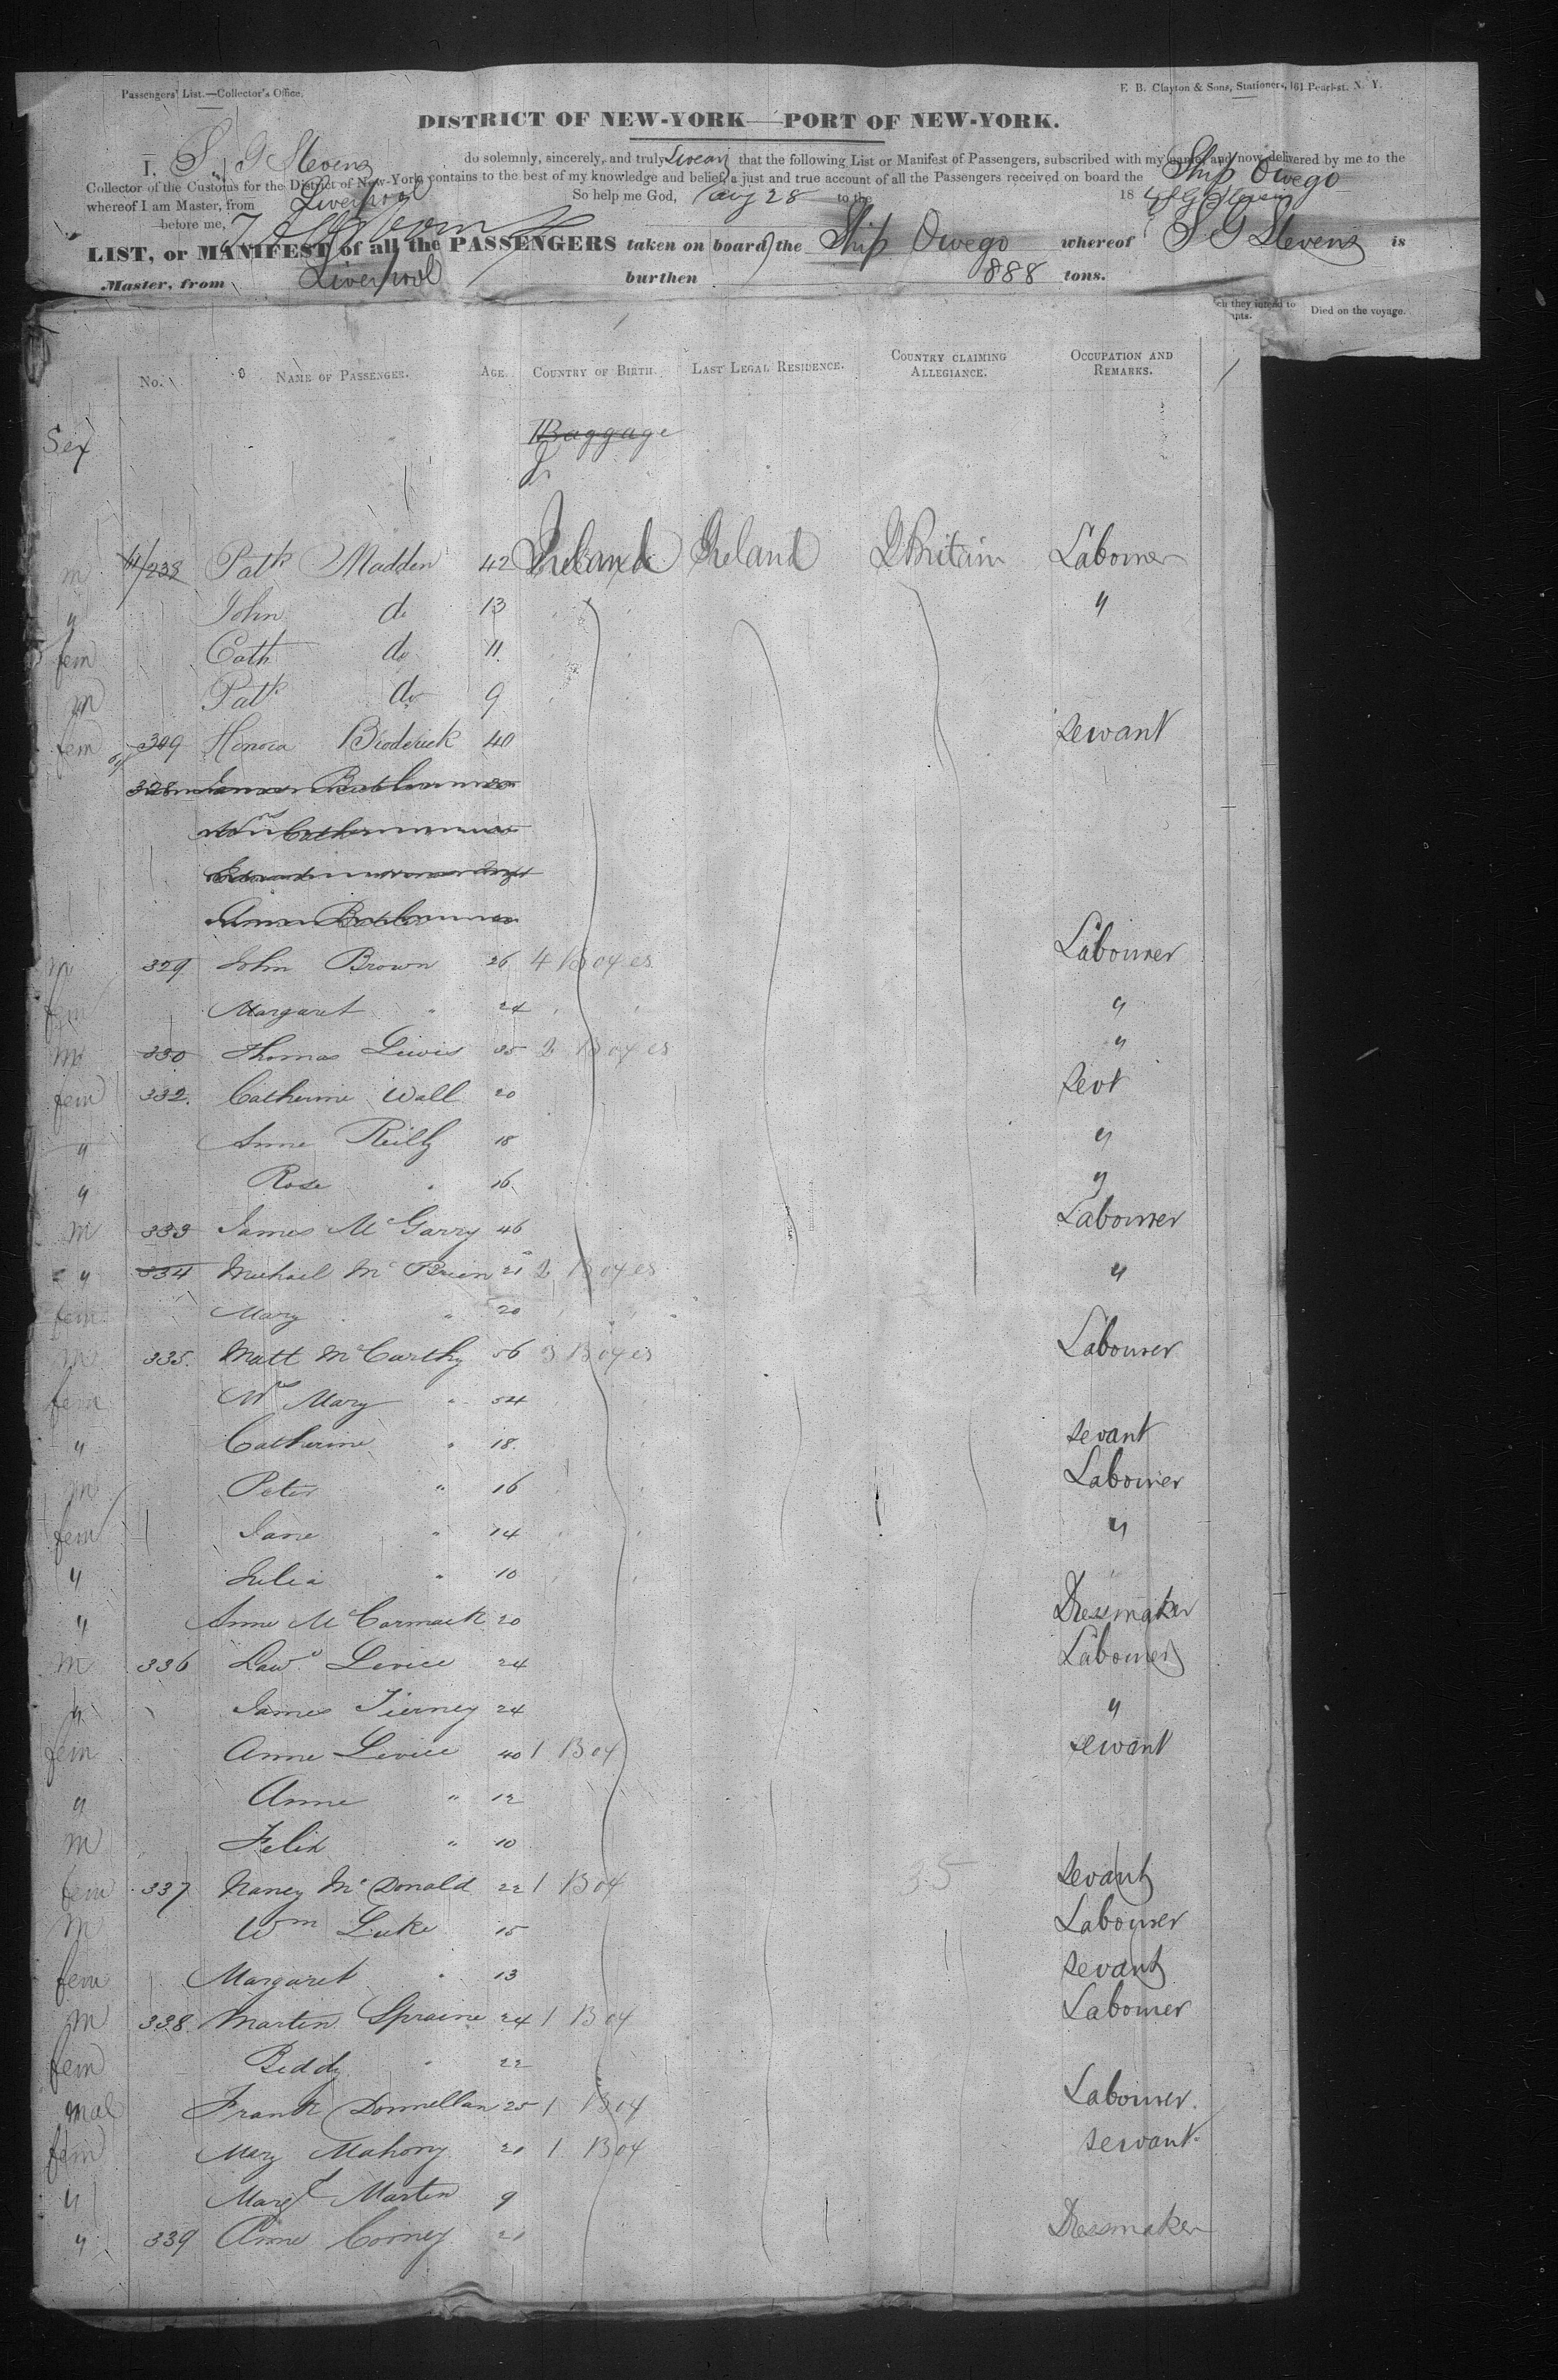 Passengers' List.—Collector's Office.
E. B. Clayton & Sons, Stationers, 161 Pearl-st. N. Y.
DISTRICT OF NEW-YORK—PORT OF NEW-YORK.
I, S. G Stevens do solemnly, sincerely, and truly Swear that the following List or Manifest of Passengers, subscribed with my name, and now delivered by me to the
Collector of the Customs for the District of New-York, contains to the best of my knowledge and belief, a just and true account of all the Passengers received on board the Ship Owego
whereof I am Master, from Liverpool So help me God, Aug 28 to the 18 S G Stevens
before me,
LIST, or MANIFEST of all the PASSENGERS taken on board the Ship Owego whereof S G Stevens is
Master, from Liverpool burthen 888 tons.
ch they intend to
nts. Died on the voyage.
No. NAME OF PASSENGER. AGE. COUNTRY OF BIRTH. LAST LEGAL RESIDENCE. COUNTRY CLAIMING ALLEGIANCE. OCCUPATION AND REMARKS.
Sex Baggage
m 238 Patk Madden 42 Ireland Ireland G Britain Labourer
" John do 13 "
fem Cath do 11
m Patk do 9
fem 309 Honora Broderick 40 servant
328
m 329 John Brown 26 4 Boxes Labourer
fem Margaret " 24 "
m 330 Thomas Lewis 35 2 Boxes "
fem 332. Catherine Wall 20 Sevt
" Anne Reilly 18 "
" Rose " 16 "
m 333 James McGarry 46 Labourer
" 334 Michael McBrien 21 2 Boxes "
fem Mary " 20
m 335. Matt McCarthy 56 3 Boxes Labourer
fem Mrs Mary " 54
" Catherine " 18. sevant
m Peter " 16 Labourer
fem Jane " 14 "
" Julia " 10
" Anne McCormack 20 Dressmaker
m 336 Lawe Levice 24 Labourer
" James Tierney 24 "
fem Anne Levice 40 1 Box sewant
" Anne " 12
m Felix " 10
fem 337 Nancy McDonald 22 1 Box 35 sevant
m Wm Luke 15 Labourer
fem Margaret " 13 sevant
m 338. Martin Spraine 24 1 Box Labourer
fem Biddy " 22
mal Frank Donnellan 25 1 Box Labourer.
fem Mary Mahony 21 1 Box servant
" Margt Martin 9
" 339 Anne Corney 21 Dressmaker